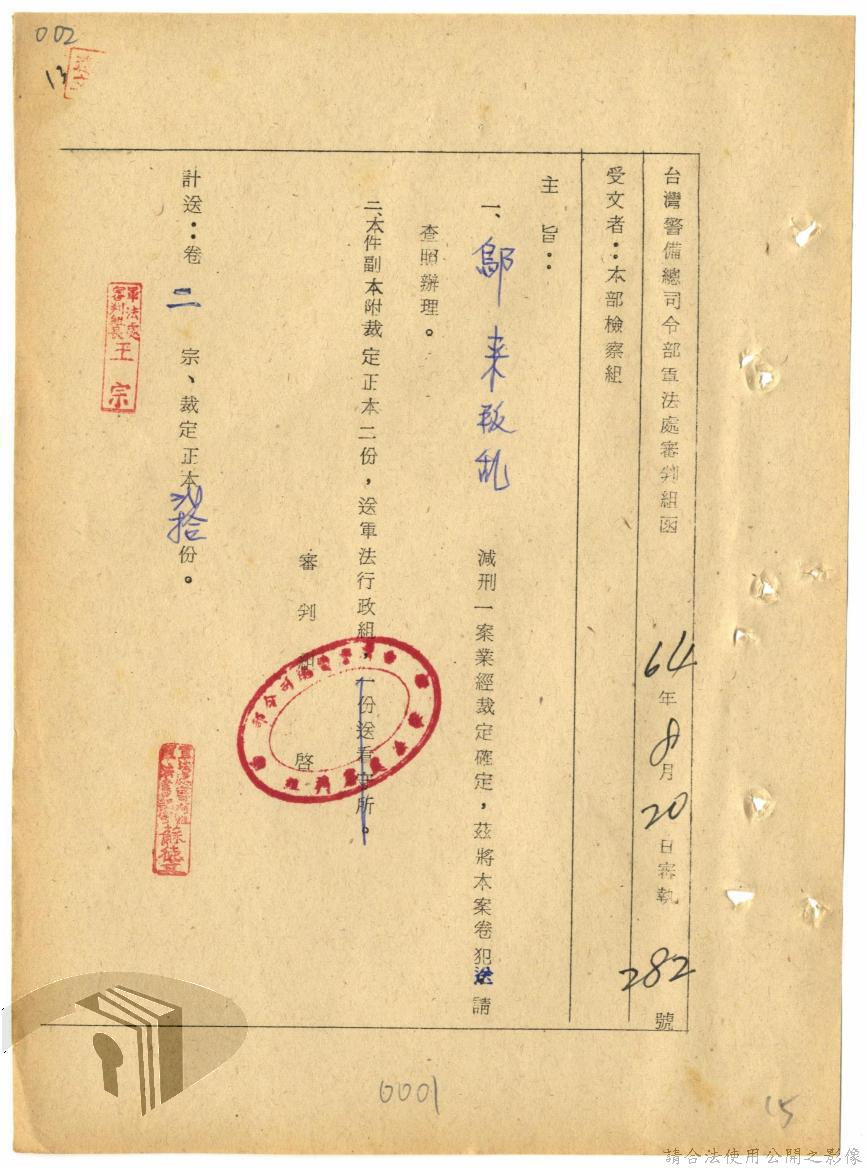 002
13
台灣警備總司令部軍法處審判組函 64年8月20日審執282號
受文者：本部檢察組
主旨：
一、鄔来叛乱 減刑一案業經裁定確定，茲將本案卷犯送請
查照辦理。
二、本件副本附裁定正本二份，送軍法行政組，一份送看守所。
審判組 啓
計送：卷二宗、裁定正本拾份。
軍法處
審判組長
王宗
蘇德
0001
15
請合法使用公開之影像